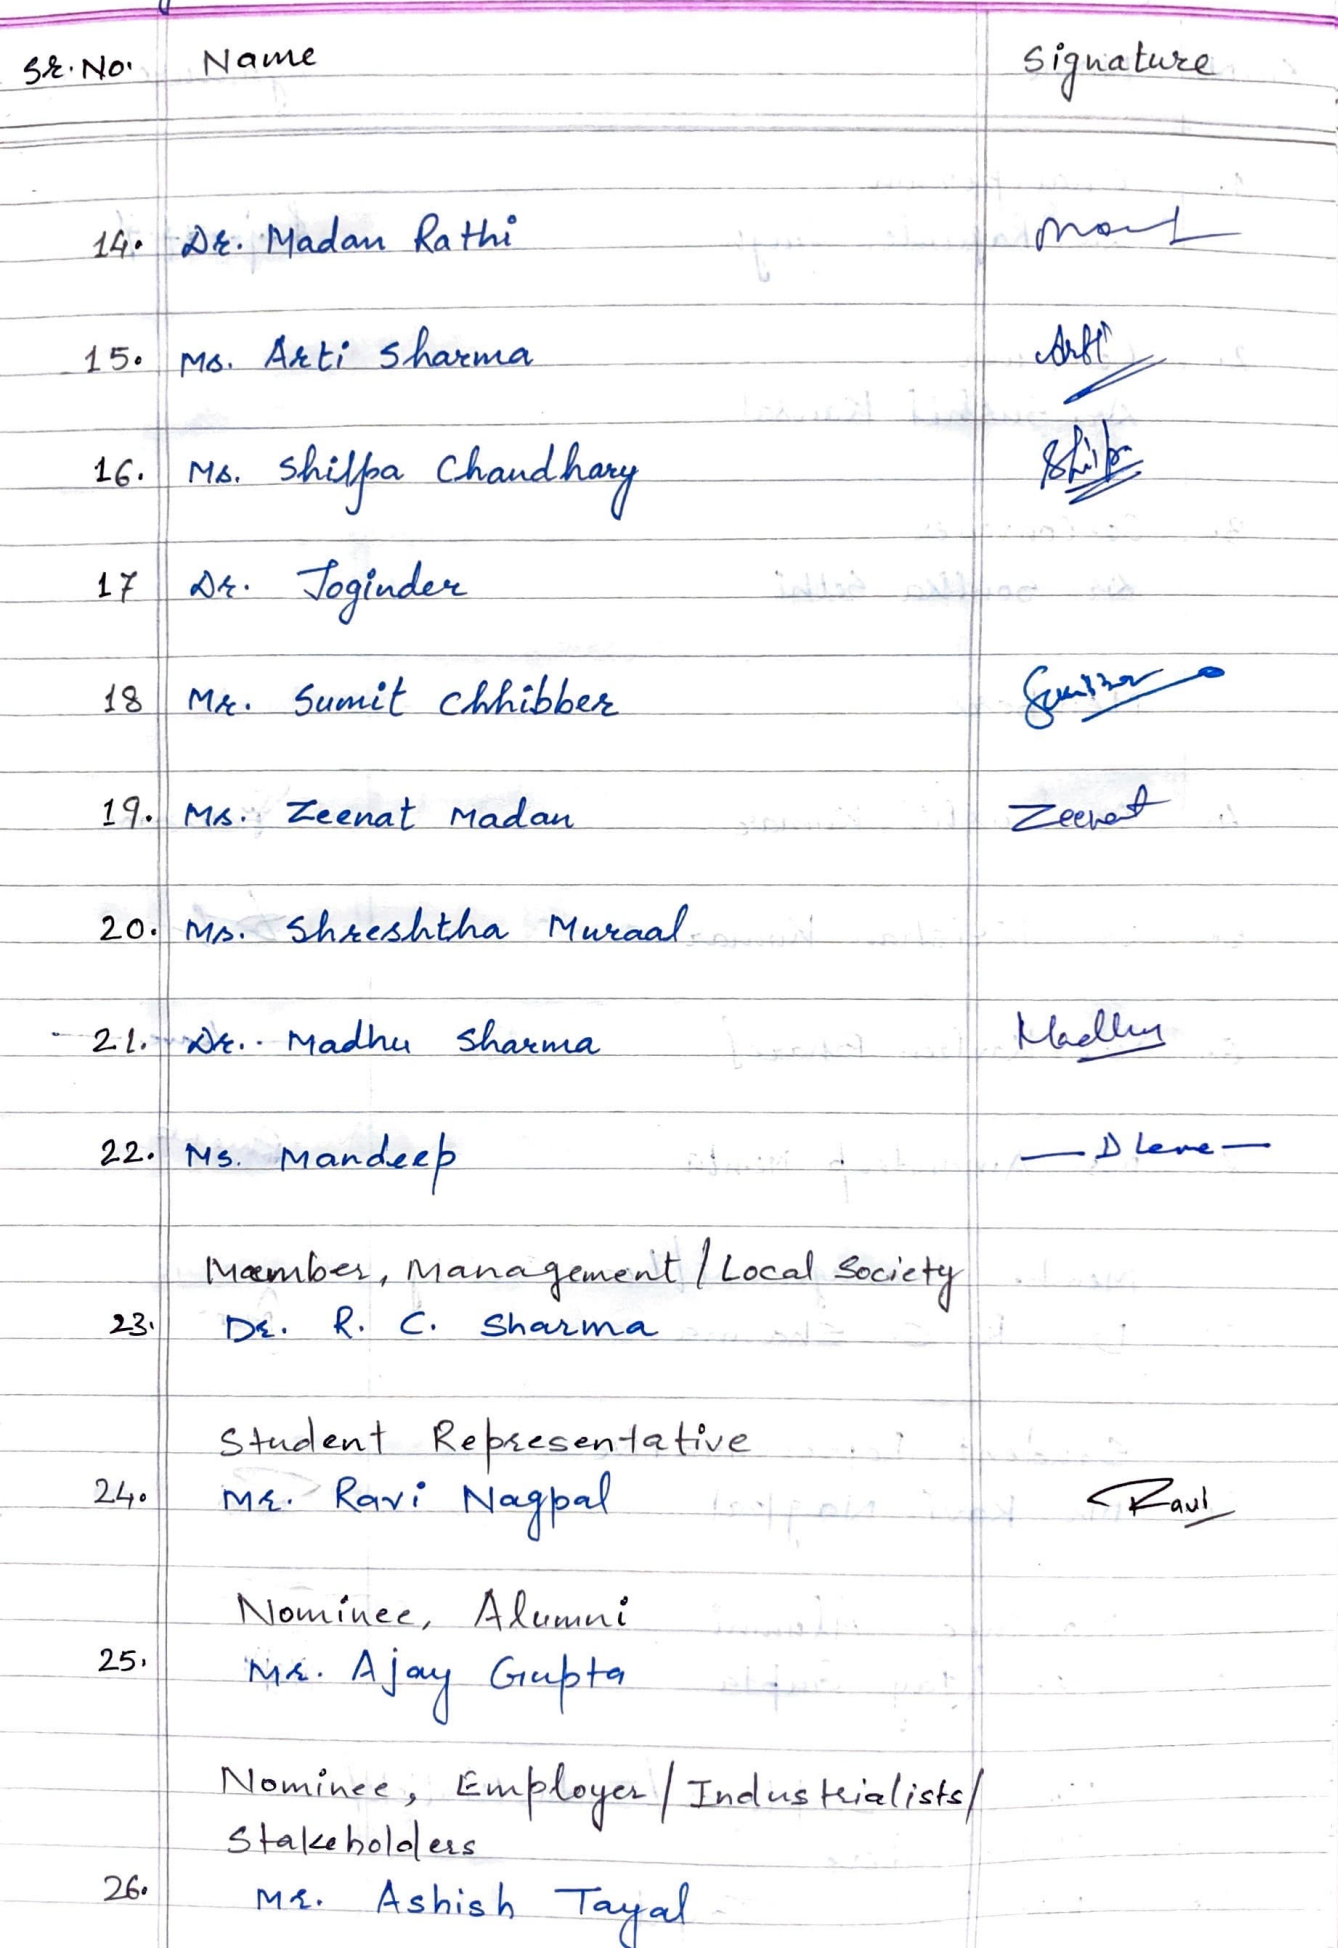 Sr. No. Name Signature
14. Dr. Madan Rathi
15. Ms. Arti Sharma Arti
16. Ms. Shilpa Chaudhary Shilpa
17 Dr. Joginder
18 Mr. Sumit Chhibber
19. Ms. Zeenat Madan Zeenat
20. Ms. Shreshtha Muraal
21. Dr. Madhu Sharma Madhu
22. Ms. Mandeep
Member, Management / Local Society
23. Dr. R. C. Sharma
Student Representative
24. Mr. Ravi Nagpal
Nominee, Alumni
25. Mr. Ajay Gupta
Nominee, Employer / Industrialists /
Stakeholders
26. Mr. Ashish Tayal